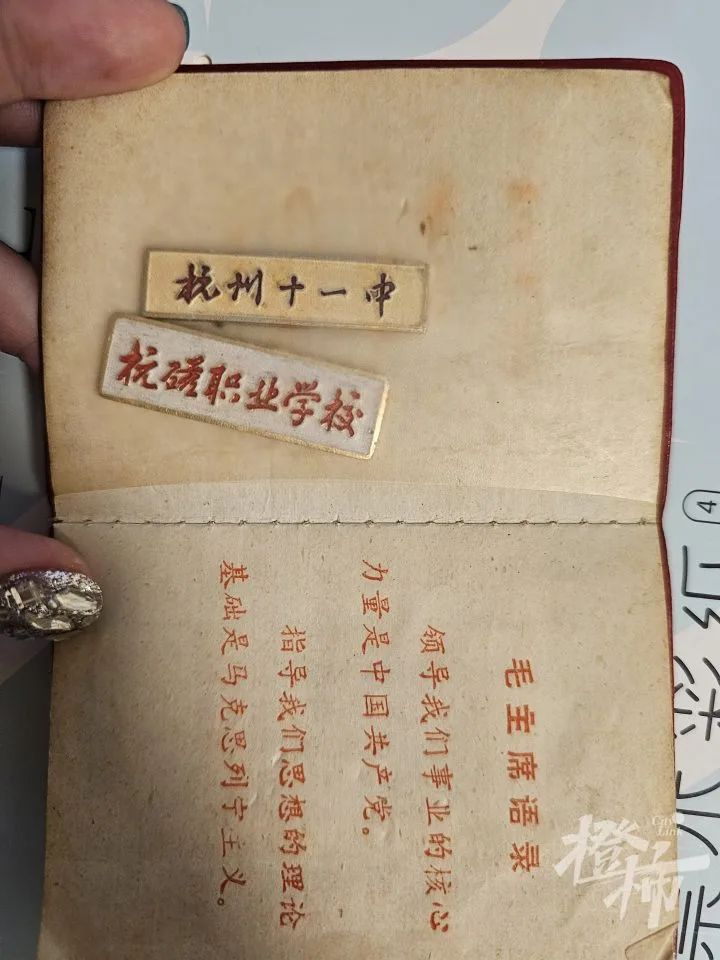 杭州十一中
杭磁职业学校
毛主席语录
领导我们事业的核心
力量是中国共产党。
指导我们思想的理论
基础是马克思列宁主义。
City Link
橙柿
4